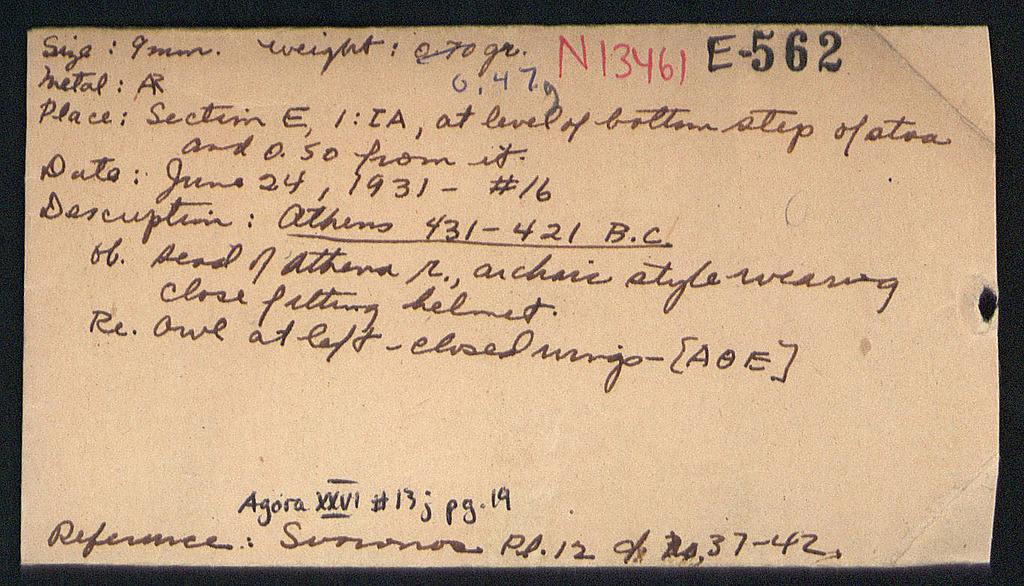 Size : 9mm. weight : c 70 gr. N13461 E-562
Metal : AR 0.47g
Place : Section E, 1:IA, at level of bottom step of stoa
and 0.50 from it.
Date : June 24, 1931 - #16
Description : Athens 431-421 B.C.
Ob. Head of Athena r., archaic style wearing
close fitting helmet.
Re. Owl at left - closed wings - [AΘE]
Agora XXVI #13j pg. 19
Reference : Svoronos Pl. 12 cf. 37-42.